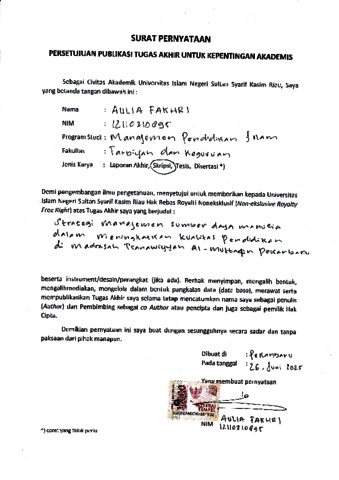 SURAT PERNYATAAN
PERSETUJUAN PUBLIKASI TUGAS AKHIR UNTUK KEPENTINGAN AKADEMIS
Sebagai Civitas Akademik Universitas Islam Negeri Sultan Syarif Kasim Riau, Saya
yang bertanda tangan dibawah ini :
Nama : AULIA FAKHRI
NIM : 12110310895
Program Studi : Manajemen Pendidikan Islam
Fakultas : Tarbiyah dan Keguruan
Jenis Karya : Laporan Akhir, Skripsi, Tesis, Disertasi *)
Demi pengembangan ilmu pengetahuan, menyetujui untuk memberikan kepada Universitas
Islam Negeri Sultan Syarif Kasim Riau Hak Bebas Royalti Noneksklusif (Non-ekslusive Royalty
Free Right) atas Tugas Akhir saya yang berjudul :
Strategi Manajemen sumber daya manusia
dalam Meningkatkan Kualitas Pendidikan
di Madrasah Tsanawiyyah Al-Muttaqin Pekanbaru
beserta instrument/desain/perangkat (jika ada). Berhak menyimpan, mengalih bentuk,
mengalihmediakan, mengelola dalam bentuk pangkalan data (date base), merawat serta
mempublikasikan Tugas Akhir saya selama tetap mencatumkan nama saya sebagai penulis
(Author) dan Pembimbing sebagai co Author atau pencipta dan juga sebagai pemilik Hak
Cipta.
Demikian pernyataan ini saya buat dengan sesungguhnya secara sadar dan tanpa
paksaan dari pihak manapun.
Dibuat di : Pekanbaru
Pada tanggal : 26, Juni 2025
Yang membuat pernyataan
TEMPEL
AULIA FAKHRI
NIM 12110310895
*) coret yang tidak perlu